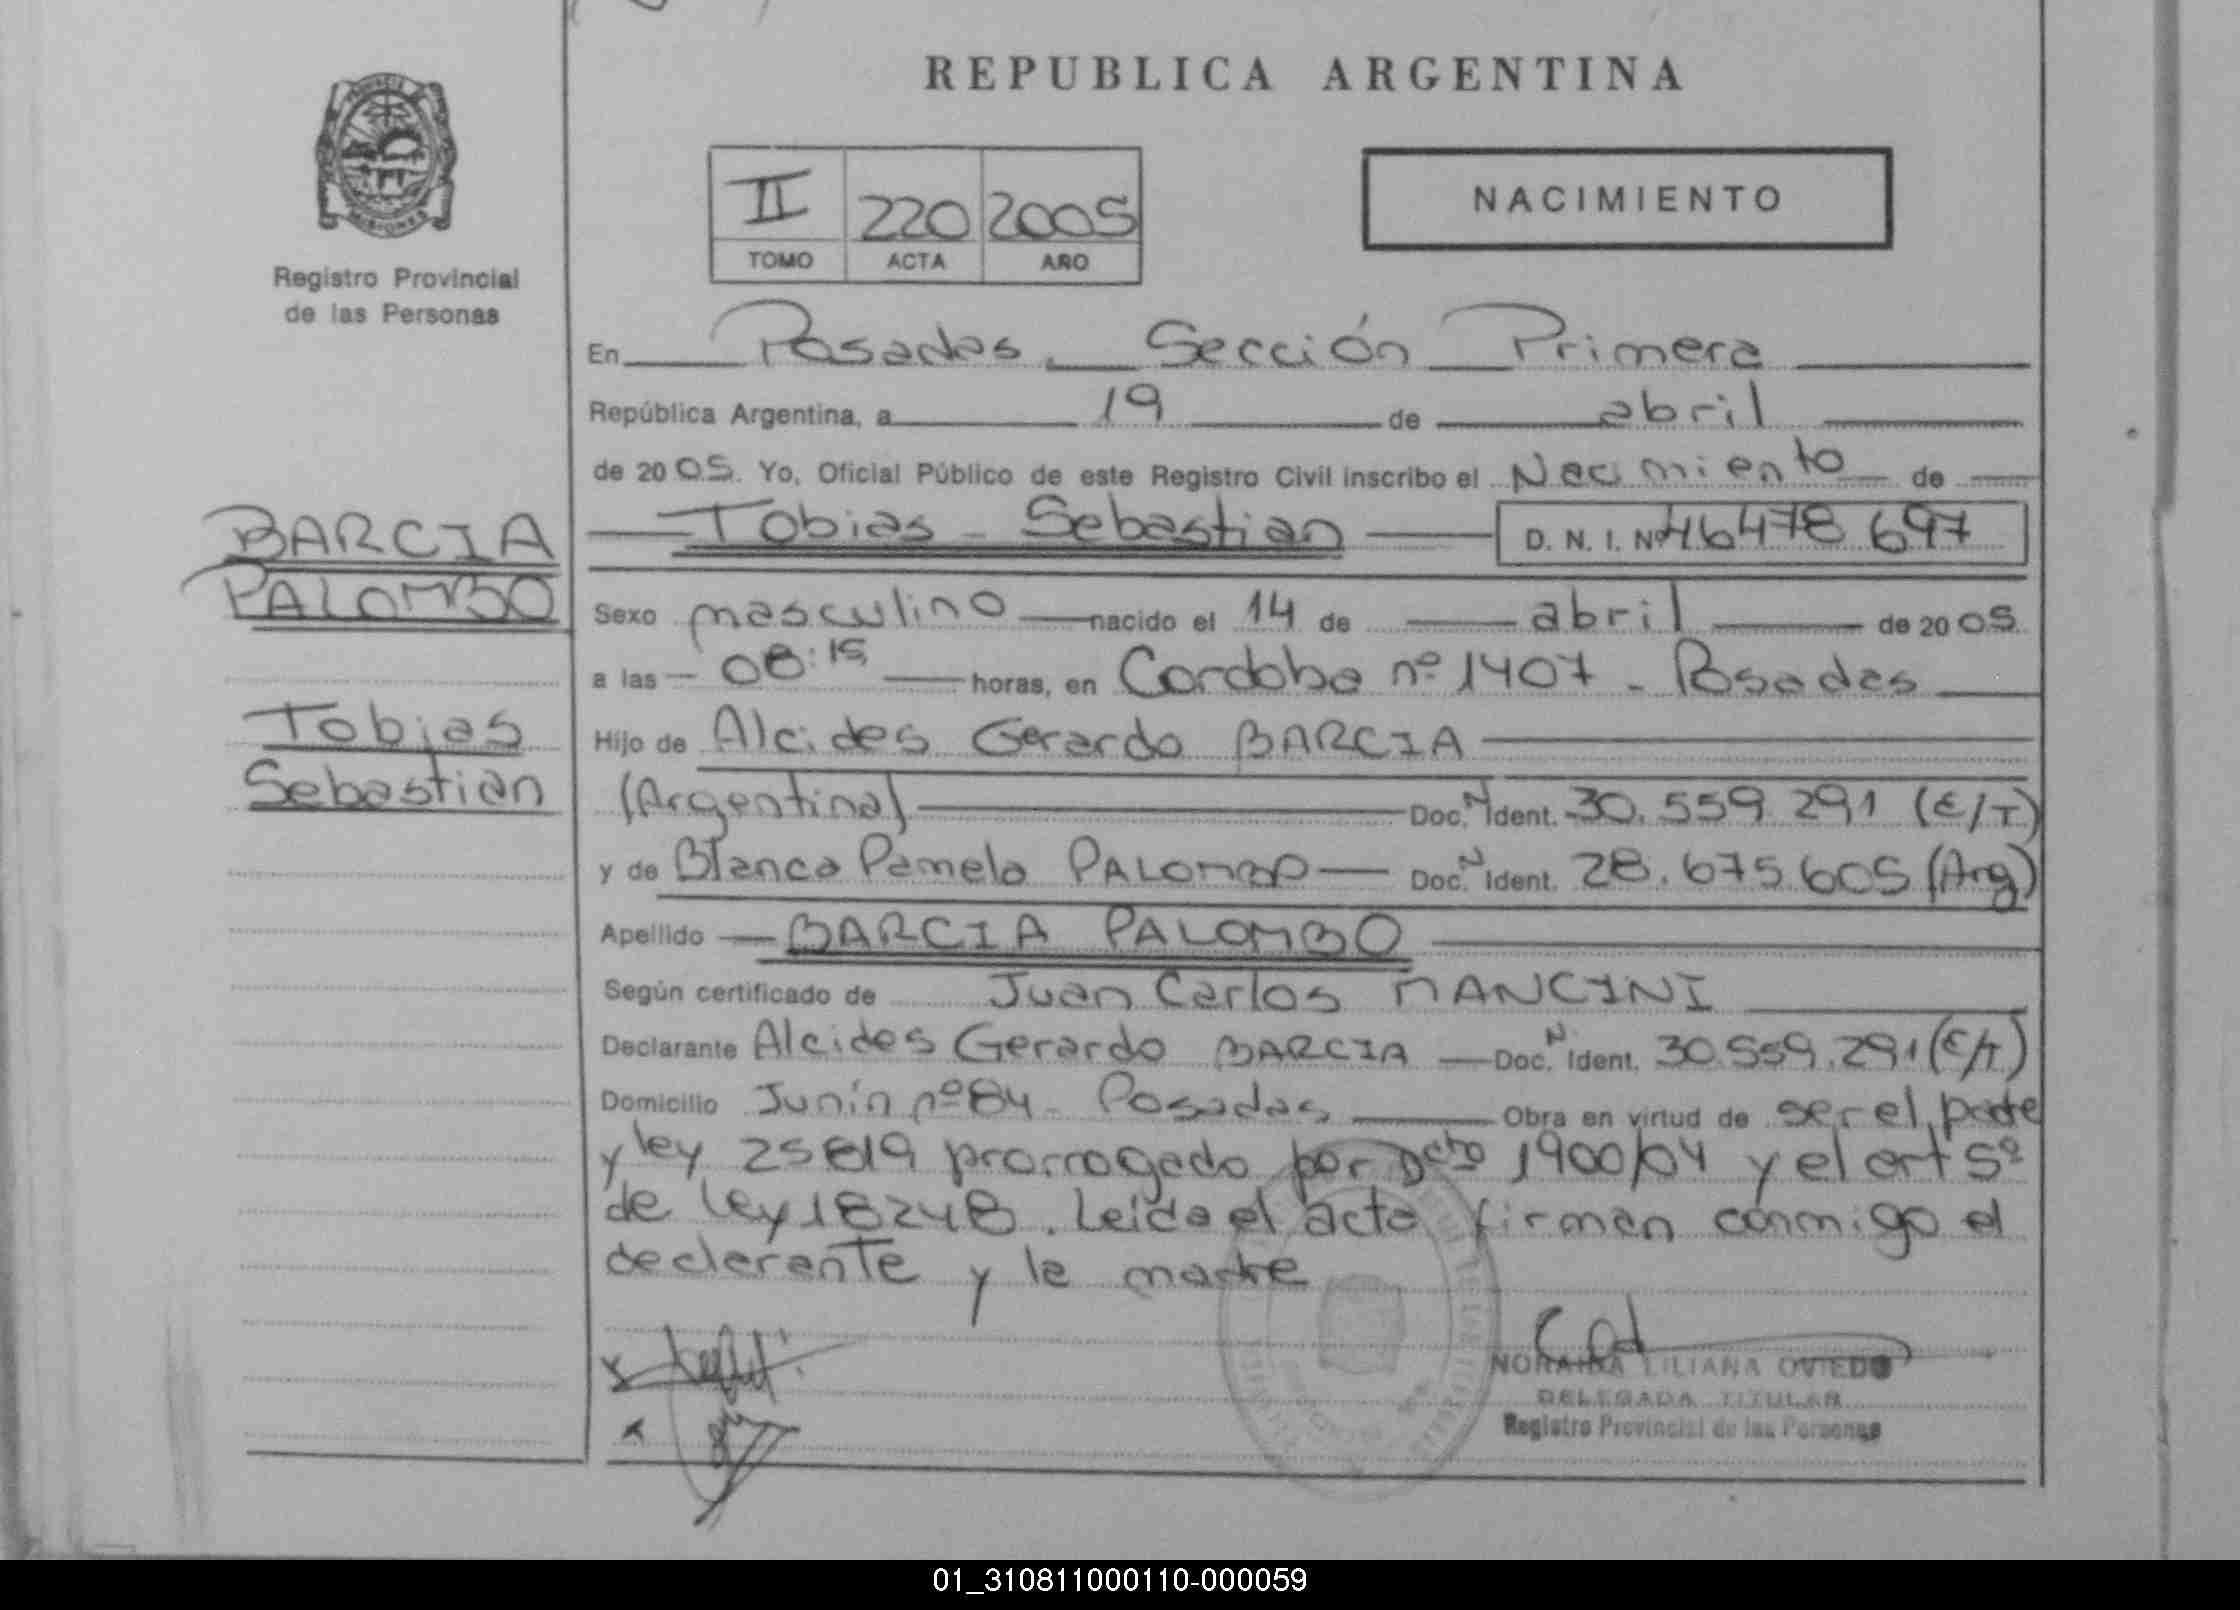 REPUBLICA ARGENTINA
NACIMIENTO
II 220 2005
TOMO ACTA AÑO
PROVINCIA DE
MISIONES
Registro Provincial
de las Personas
En Posadas. Sección Primera
República Argentina, a 19 de abril
de 2005. Yo, Oficial Público de este Registro Civil inscribo el Nacimiento de
Tobias - Sebastian D. N. I. Nº 46478 697
BARCIA
PALOMBO
Tobias
Sebastian
Sexo masculino nacido el 14 de abril de 2005
a las 08:15 horas, en Cordoba nº 1407 - Posadas
Hijo de Alcides Gerardo BARCIA
(Argentina) Doc. N Ident. 30.559.291 (E/T)
y de Blanca Pamela PALOMBO Doc. N Ident. 28.675.605 (Arg)
Apellido BARCIA PALOMBO
Según certificado de Juan Carlos MANCINI
Declarante Alcides Gerardo BARCIA Doc. N Ident. 30.559.291 (E/T)
Domicilio Junín nº 84 - Posadas Obra en virtud de ser el padre
y ley 25819 prorrogado por Dcto 1900/04 y el art 5º
de ley 18248. Leida el acta firman conmigo el
declarante y la madre
NORAINA LILIANA OVIEDO
DELEGADA TITULAR
Registro Provincial de las Personas
01_310811000110-000059